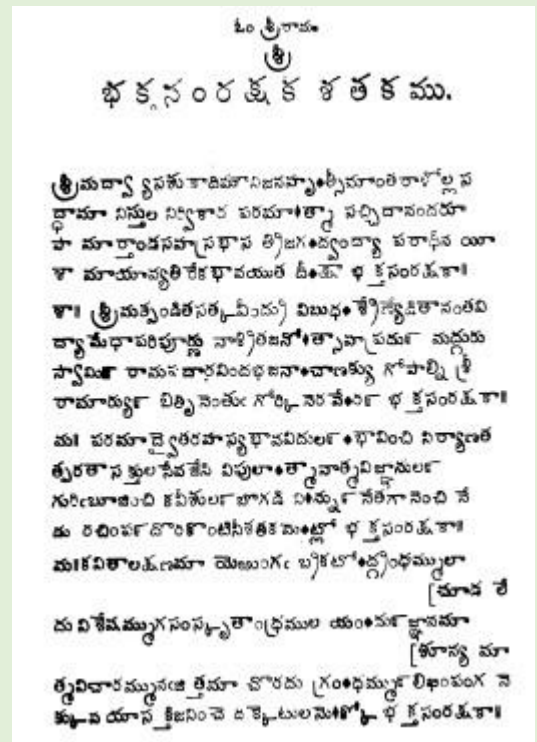 ఓం శ్రీరామ
శ్రీ
భక్తసంరక్షక శతకము.
శ్రీమద్వ్యాసశుకాదిమౌనిజనహృత్సీమాంతరాళోల్లస
ద్ధామా నిస్తుల నిర్వికార పరమాత్మా సచ్చిదానందరూ
పా మార్తాండసహస్రభాస త్రిజగద్వంద్యా పరాధీన యీ
శా మాయావ్యతిరేకభావయుత భక్తసంరక్షకా॥
శా॥ శ్రీమత్పండితసత్కవీంద్ర విబుధ శ్రేణ్యేడితానంతవి
ద్యామేధాపరిపూర్ణు నాశ్రితజనోత్సాహప్రదున్ మద్గురు
స్వామిన్ రామపదారవిందభజనాచాణక్యు గోపాల్ని శ్రీ
రామార్యున్ నెంతుఁ గోర్కి నెరవేరన్ భక్తసంరక్షకా॥
మ॥ పరమాద్వైతరహస్యభావవిదులన్ భావించి నిర్యాణత
త్పరతాసక్తులసేవజేసి విపులాత్మానాత్మవిజ్ఞానులన్
గురిఁబూజించి కవీశులన్ బొగడి నిన్నున్ నేతగా నెంచి నే
డు రచింపన్ దొరకొంటినీశతక మట్లో భక్తసంరక్షకా॥
మ॥కవితాలక్షణమా యెఱుంగఁ బ్రకటోద్గ్రంధమ్ములా
[చూడ లే
దు విశేషమ్ముగసంస్కృతాంధ్రముల యందున్ జ్ఞానమా
[శూన్య మా
త్మవిచారమ్మునఁ జిత్తమా చొరదు గ్రంధమ్మున్ లిఖింపంగ నె
క్కువ యాసక్తిజనించె భక్తసంరక్షకా॥